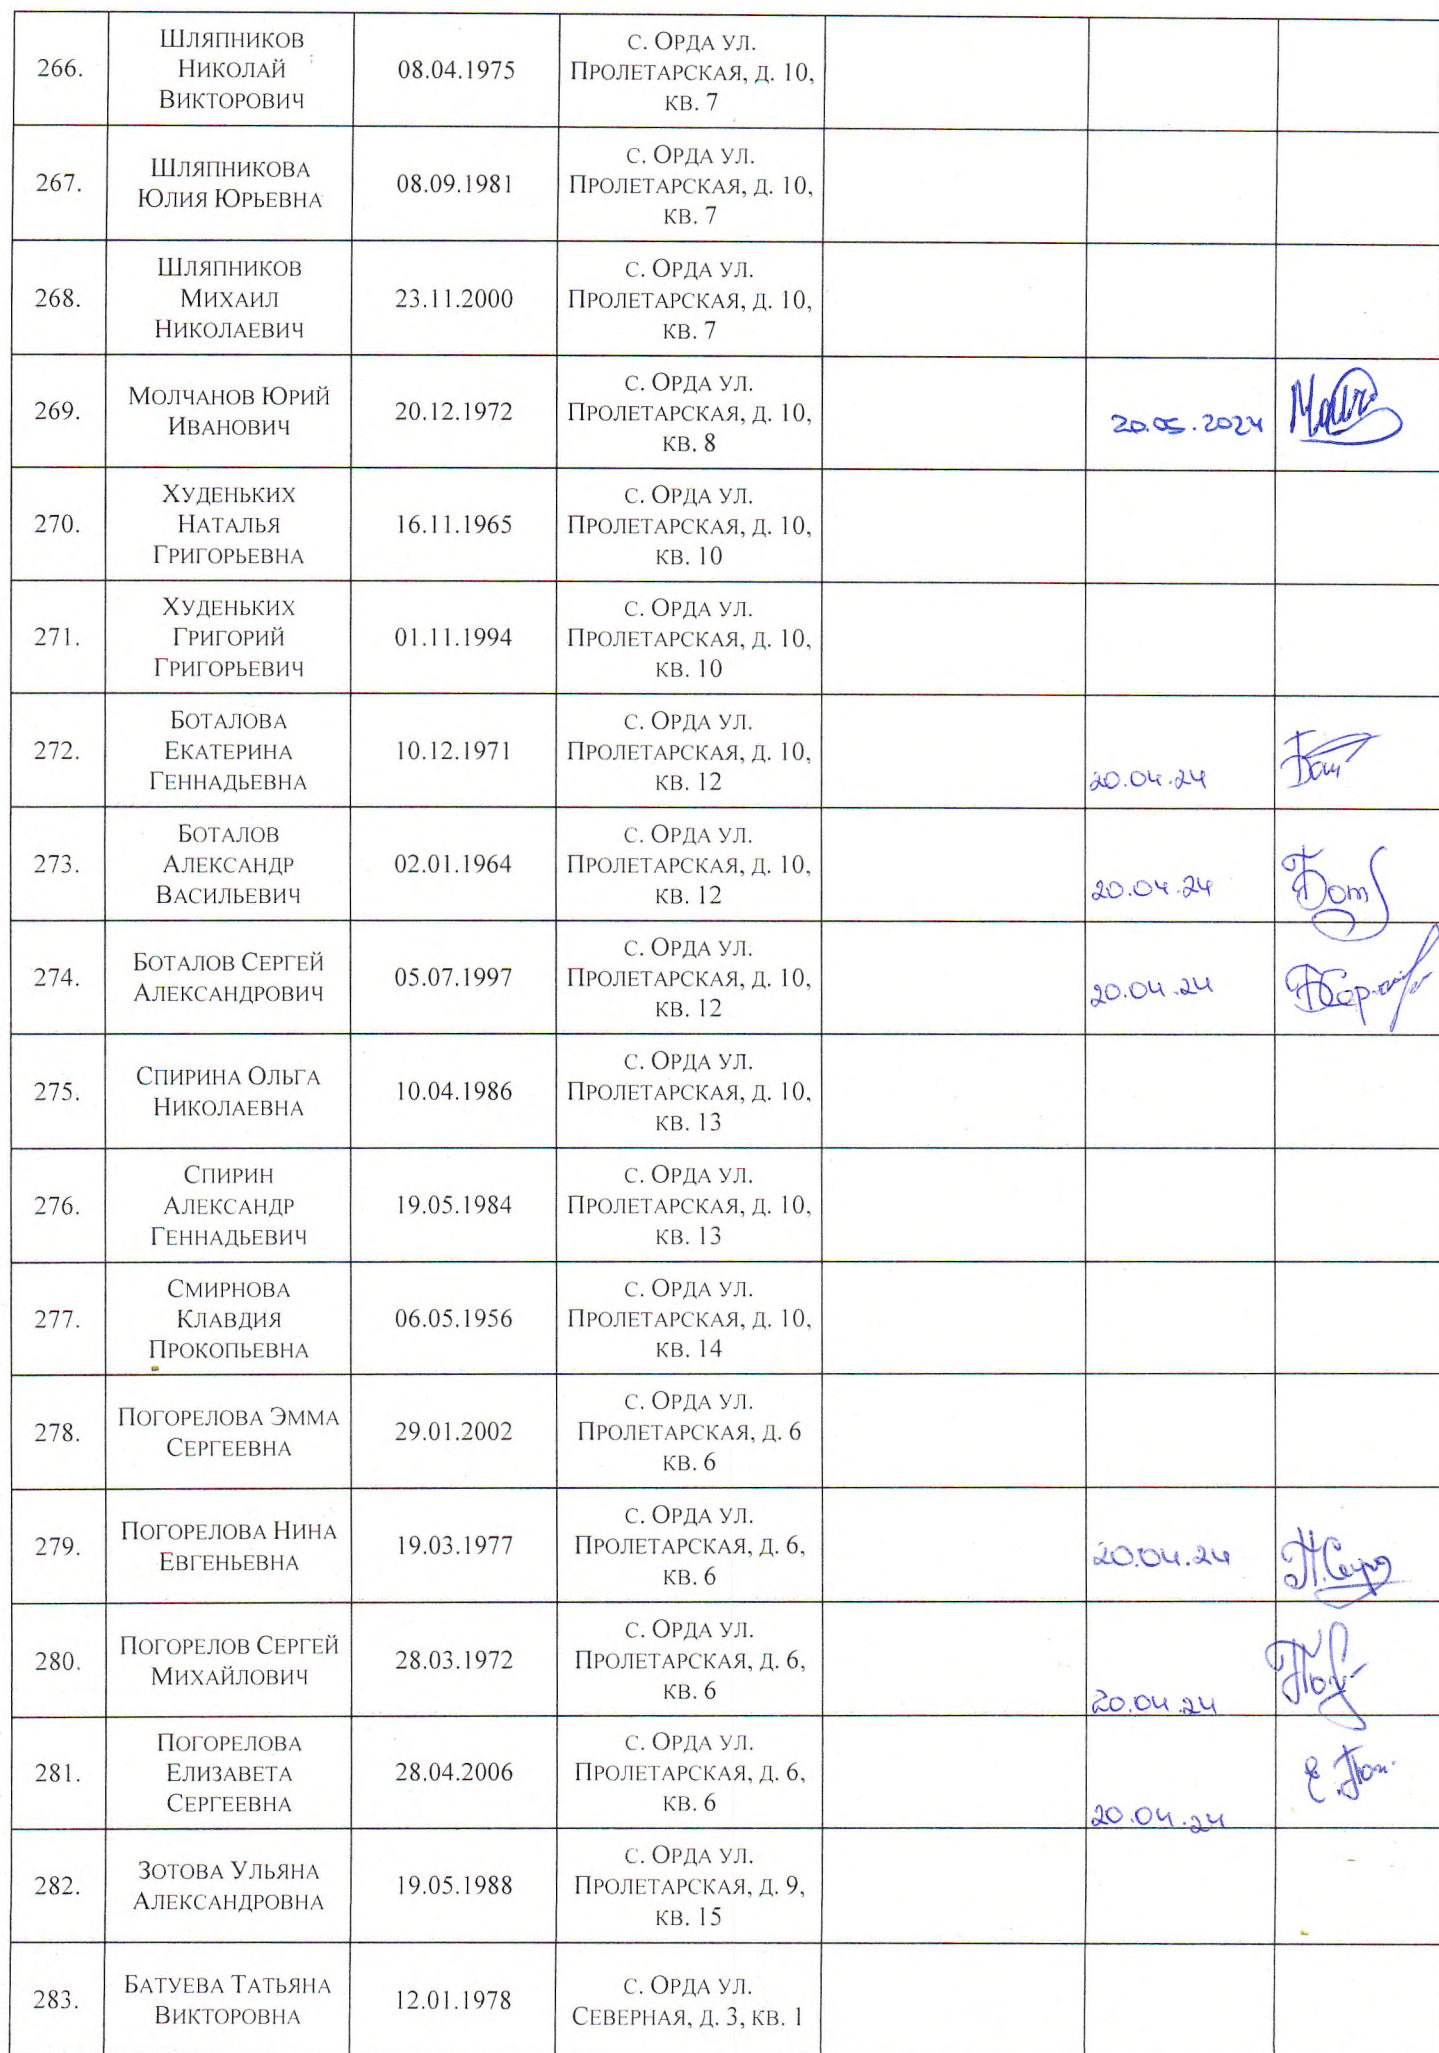 266.
Шляпников
Николай
Викторович
08.04.1975
с. Орда ул.
Пролетарская, д. 10,
кв. 7
267.
Шляпникова
Юлия Юрьевна
08.09.1981
с. Орда ул.
Пролетарская, д. 10,
кв. 7
268.
Шляпников
Михаил
Николаевич
23.11.2000
с. Орда ул.
Пролетарская, д. 10,
кв. 7
269.
Молчанов Юрий
Иванович
20.12.1972
с. Орда ул.
Пролетарская, д. 10,
кв. 8
20.05.2024
270.
Худеньких
Наталья
Григорьевна
16.11.1965
с. Орда ул.
Пролетарская, д. 10,
кв. 10
271.
Худеньких
Григорий
Григорьевич
01.11.1994
с. Орда ул.
Пролетарская, д. 10,
кв. 10
272.
Боталова
Екатерина
Геннадьевна
10.12.1971
с. Орда ул.
Пролетарская, д. 10,
кв. 12
20.04.24
273.
Боталов
Александр
Васильевич
02.01.1964
с. Орда ул.
Пролетарская, д. 10,
кв. 12
20.04.24
274.
Боталов Сергей
Александрович
05.07.1997
с. Орда ул.
Пролетарская, д. 10,
кв. 12
20.04.24
275.
Спирина Ольга
Николаевна
10.04.1986
с. Орда ул.
Пролетарская, д. 10,
кв. 13
276.
Спирин
Александр
Геннадьевич
19.05.1984
с. Орда ул.
Пролетарская, д. 10,
кв. 13
277.
Смирнова
Клавдия
Прокопьевна
06.05.1956
с. Орда ул.
Пролетарская, д. 10,
кв. 14
278.
Погорелова Эмма
Сергеевна
29.01.2002
с. Орда ул.
Пролетарская, д. 6
кв. 6
279.
Погорелова Нина
Евгеньевна
19.03.1977
с. Орда ул.
Пролетарская, д. 6,
кв. 6
20.04.24
280.
Погорелов Сергей
Михайлович
28.03.1972
с. Орда ул.
Пролетарская, д. 6,
кв. 6
20.04.24
281.
Погорелова
Елизавета
Сергеевна
28.04.2006
с. Орда ул.
Пролетарская, д. 6,
кв. 6
20.04.24
282.
Зотова Ульяна
Александровна
19.05.1988
с. Орда ул.
Пролетарская, д. 9,
кв. 15
283.
Батуева Татьяна
Викторовна
12.01.1978
с. Орда ул.
Северная, д. 3, кв. 1